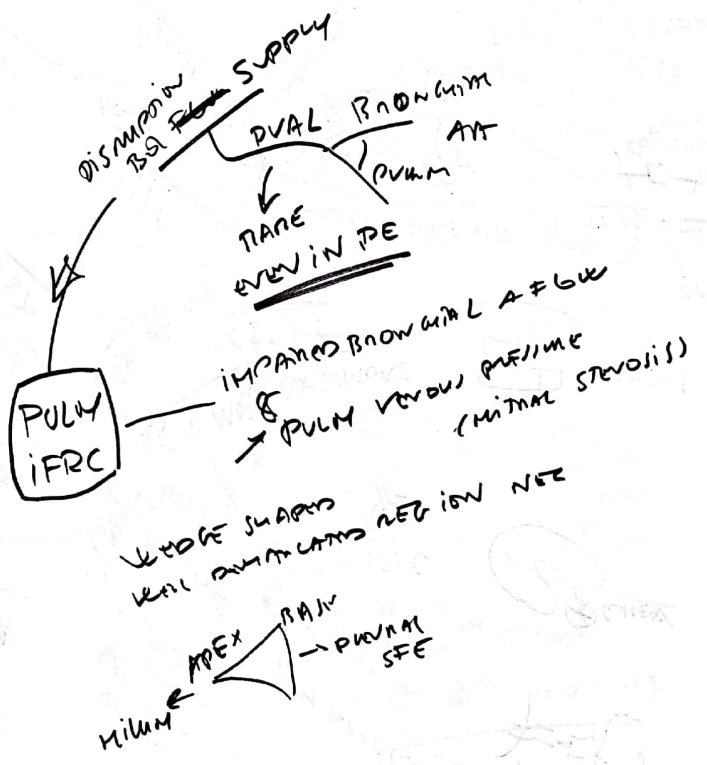 DISRUPTION
BS SUPPLY
DUAL
BRONCHIAL
AA
PULM
RARE
EVEN IN PE
IMPAIRED BRONCHIAL A FLOW
&
↗ PULM VENOUS PRESSURE
(MITRAL STENOSIS)
PULM
iFRC
WEDGE SHAPED
WELL DEMARCATED REGION NEC
APEX
BASE
→ PLEURAL
SFE
HILUM